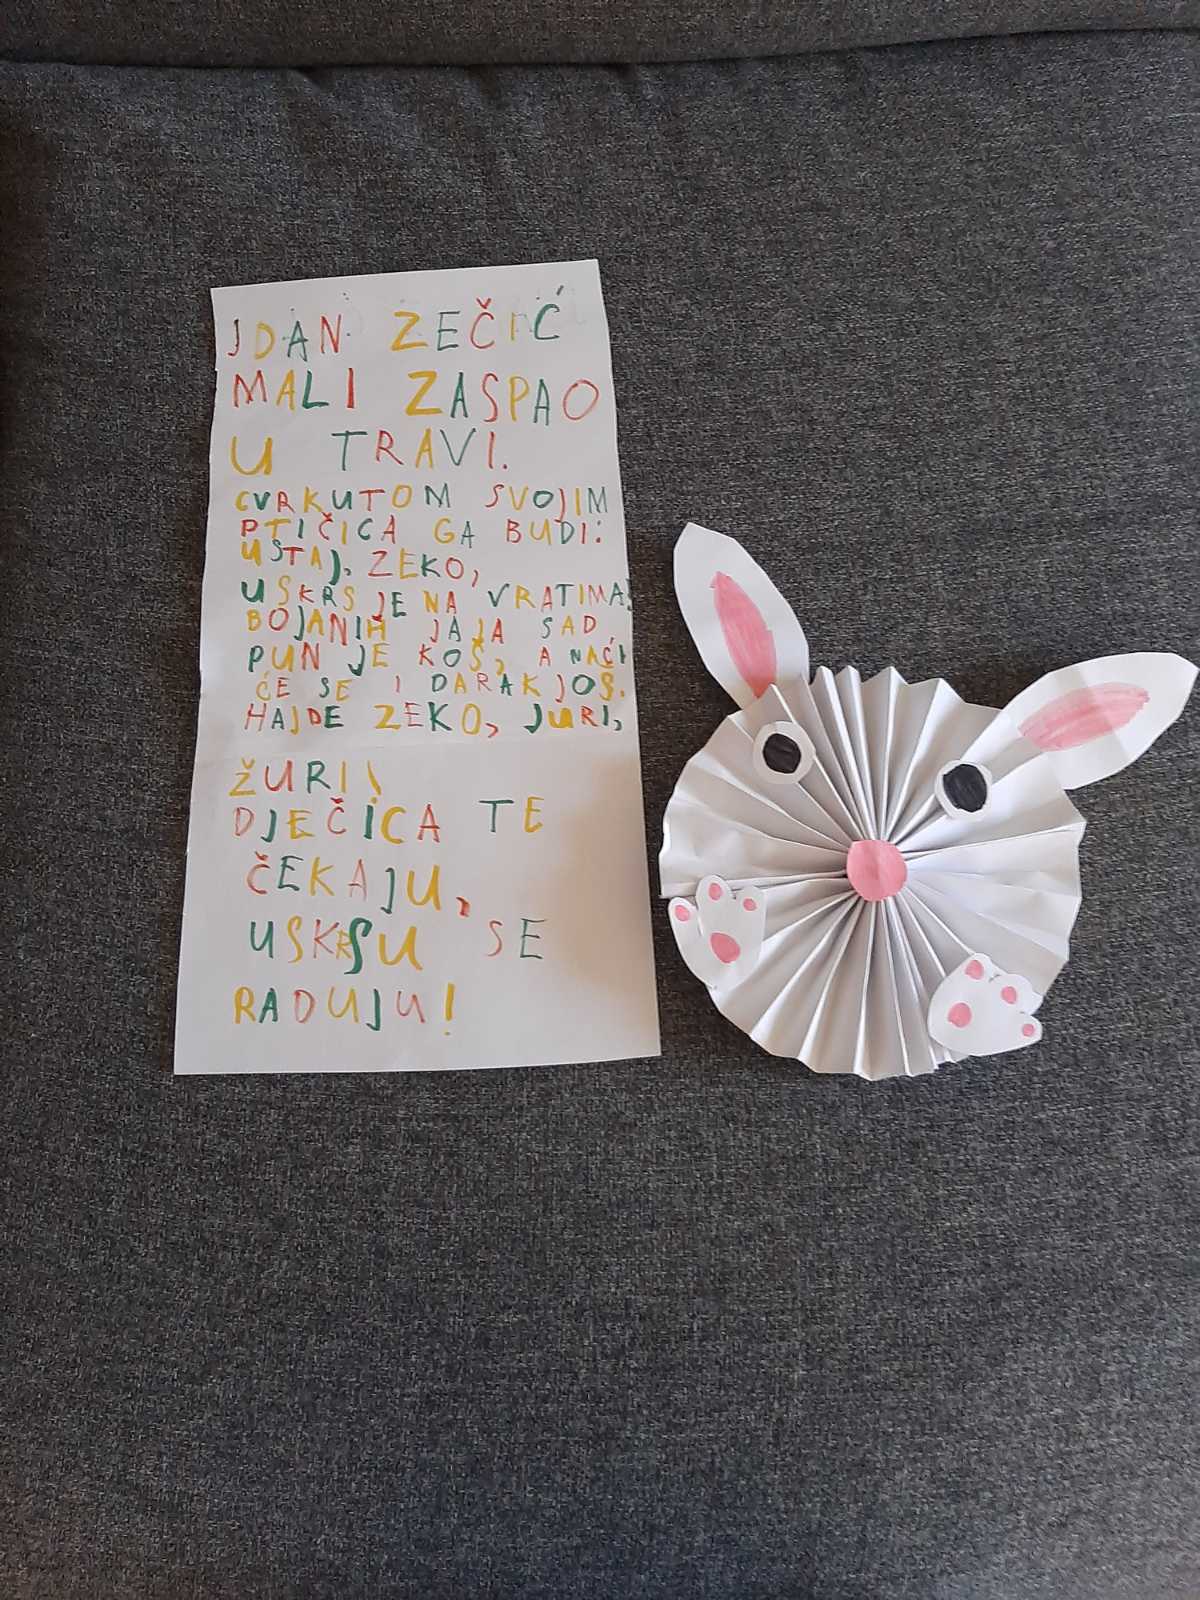 JDAN ZEČIĆ
MALI ZASPAO
U TRAVI.
CVRKUTOM SVOJIM
PTIČICA GA BUDI:
USTAJ, ZEKO,
USKRS JE NA VRATIMA!
BOJANIH JAJA SAD
PUN JE KOŠ, A NAĆI
ĆE SE I DARAK JOŠ.
HAJDE ZEKO, JURI,
ŽURI!
DJEČICA TE
ČEKAJU,
USKRSU SE
RADUJU!